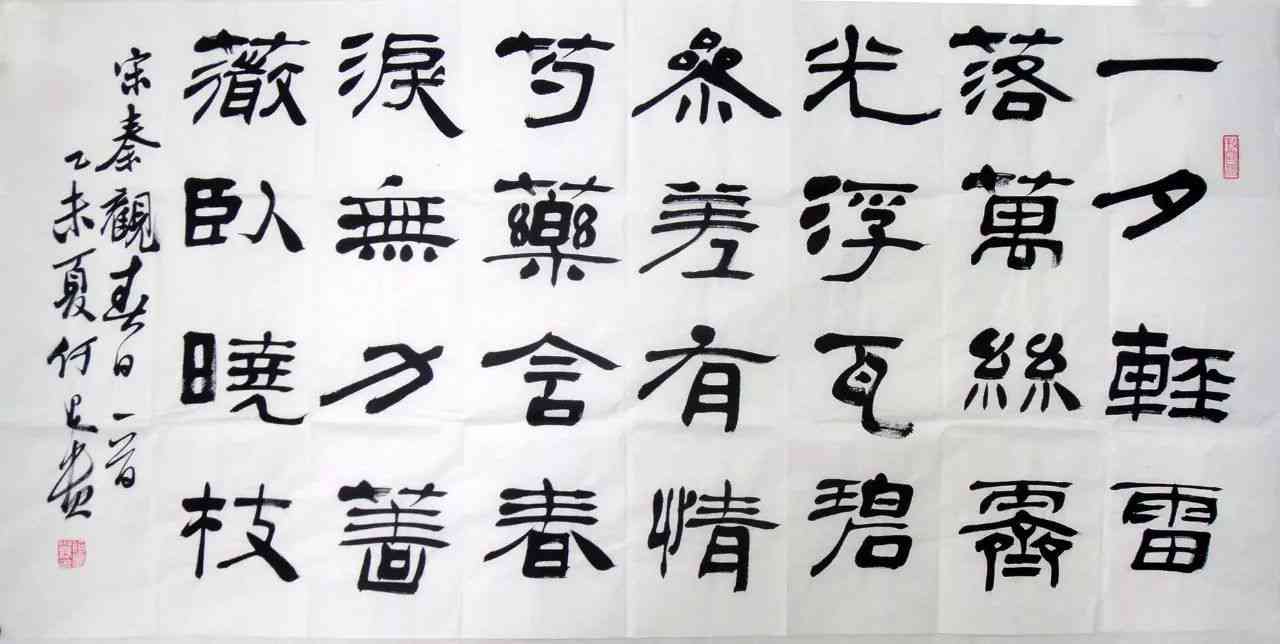 一夕輕雷
落萬絲霽
光浮瓦碧
參差有情
芍藥含春
淚無力薔
薇臥曉枝
宋秦觀春日一首
乙未夏何書